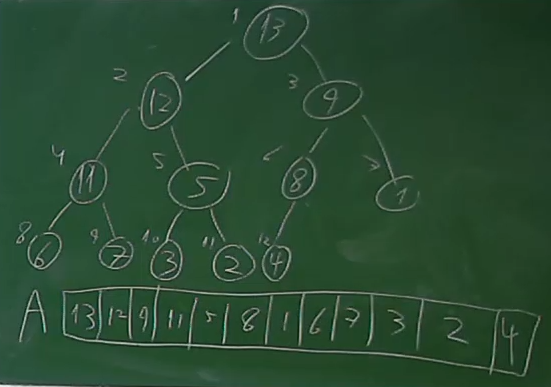 1 13
2 12 3 9
4 11 5 5 6 8 7 1
8 6 9 7 10 3 11 2 12 4
A 13 12 9 11 5 8 1 6 7 3 2 4